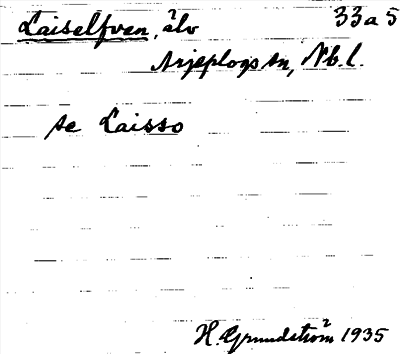 Laiselfven, älv 33a5
Arjeplogs sn, Nb. l.
se Laisso
H. Grundström 1935